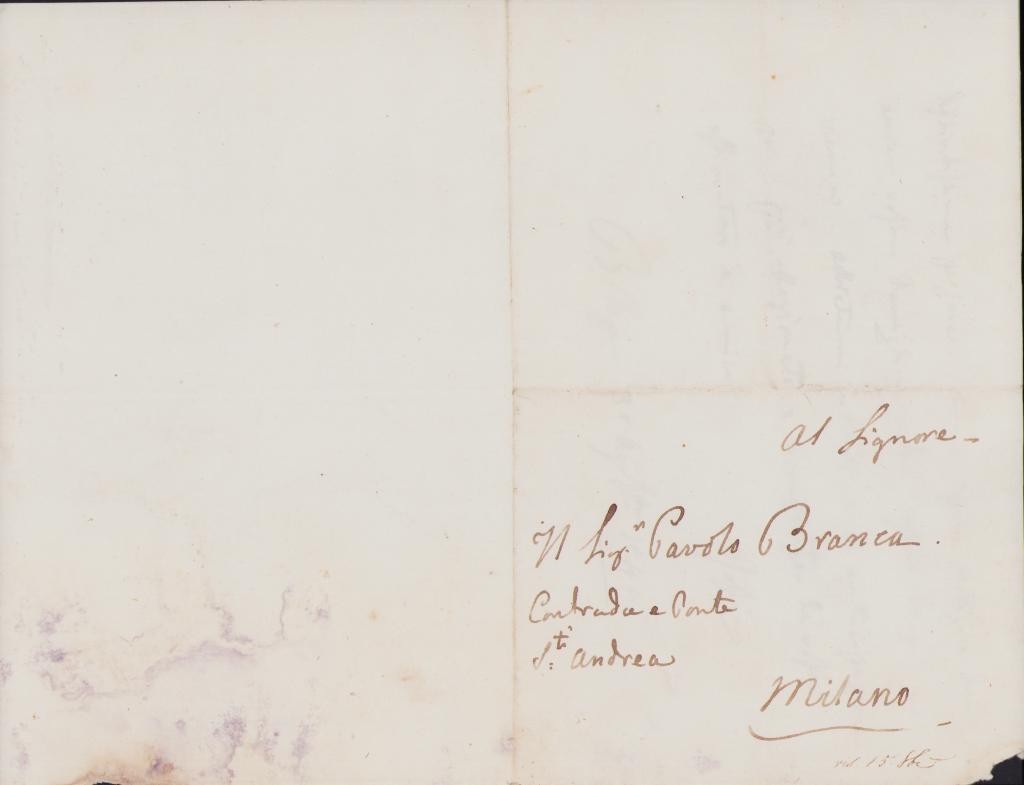 Al Signore -
Il Sig.r Pavolo Branca.
Contrada e Ponte
S:ti Andrea
Milano
15 8bre